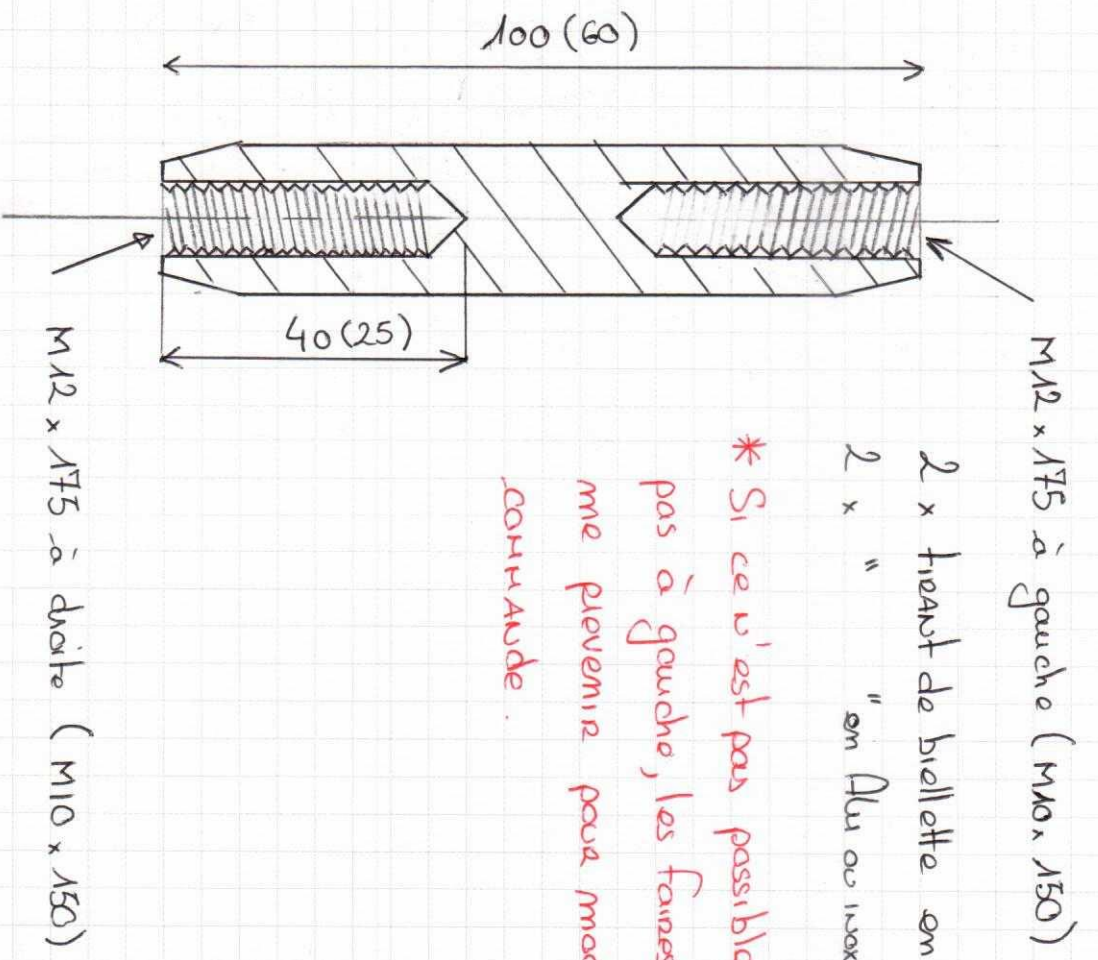 100 (60)
40 (25)
M12 x 175 à gauche (M10 x 150)
2 x tirant de biellette en
2 x " " en Alu ou inox
* Si ce n'est pas possible
pas à gauche, les faires
me prevenir pour
COMMANDE.
M12 x 175 à droite (M10 x 150)